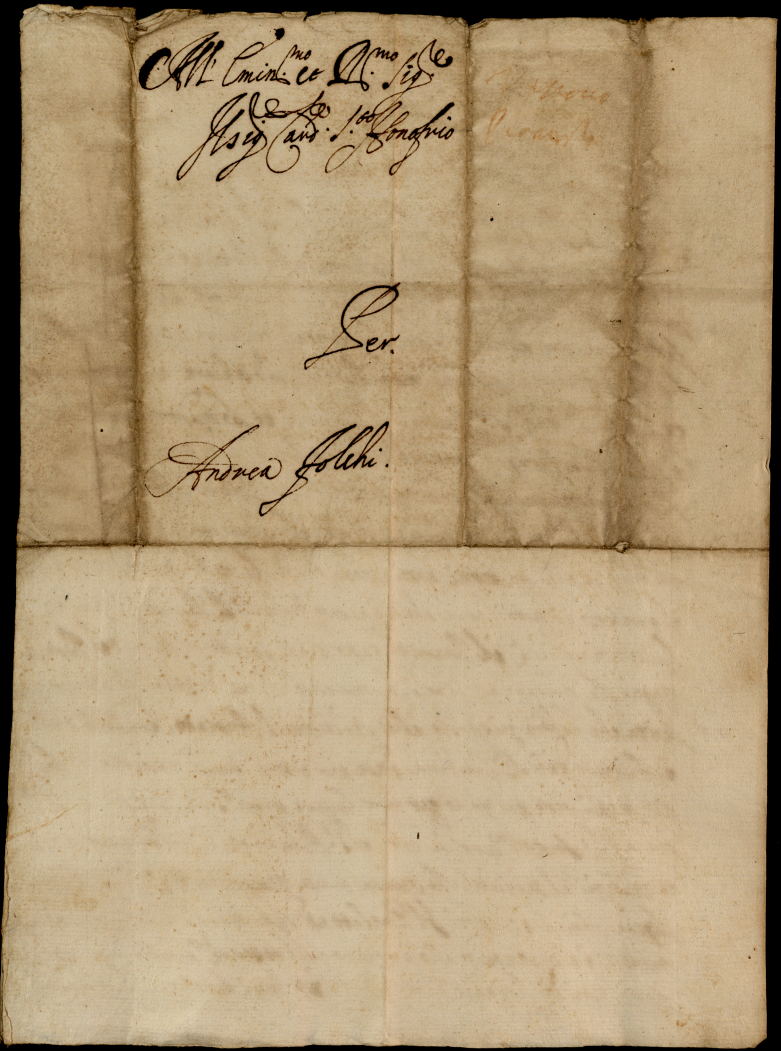 All' Emin.mo et R.mo Sig.re
Il sig.re Card.le S.to Honofrio
Per.
Andrea Folchi.